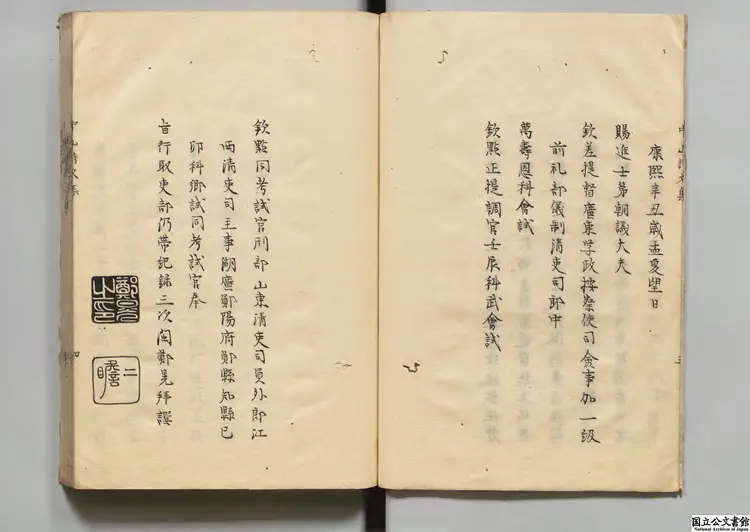 康熙辛丑歲孟夏望日
賜進士第朝議大夫
欽差提督廣東學政按察使司僉事加一級
前礼部儀制清吏司郎中
萬壽恩科會試
欽點正提調官壬辰科武會試
欽點同考試官刑部山東清吏司員外郎江
西清吏司主事湖廣鄖陽府鄖縣知縣己
卯科鄉試同考試官奉
旨行取吏部仍帶紀録三次閩鄭晃拜譔
中山詩文集
四
国立公文書館
National Archives of Japan